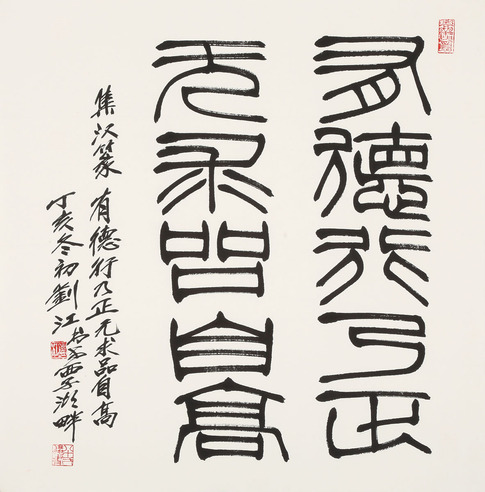 有德行乃正
无求品自高
集汉篆 有德行乃正无求品自高
丁亥冬初劉江书於西子湖畔